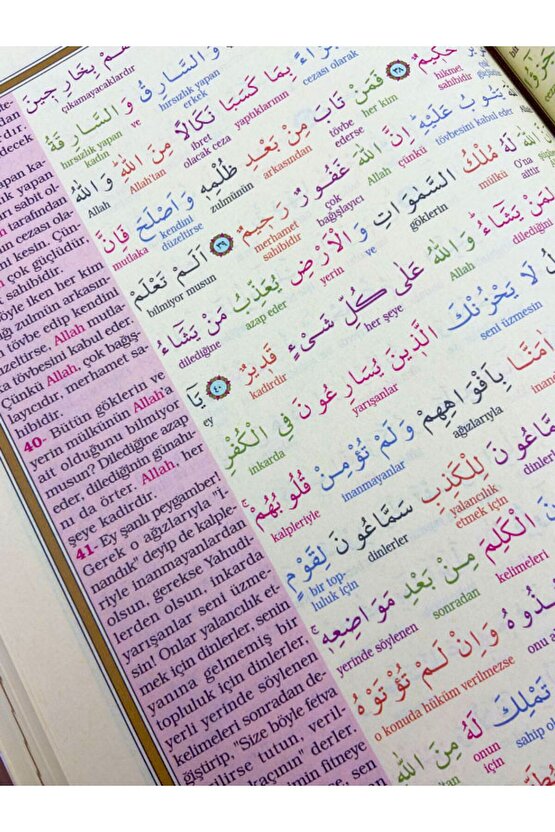 بِخَارِجِينَ
çıkamayacaklardır
وَالسَّارِقُ وَالسَّارِقَةُ
hırsızlık yapan erkek ve hırsızlık yapan kadın
بِمَا كَسَبَا نَكَالًا مِنَ اللّٰهِ وَاللّٰهُ
cezası olarak yaptıklarının ibret olacak ceza Allah'tan Allah
حَكِيمٌ ٣٨ فَمَنْ تَابَ مِنْ بَعْدِ ظُلْمِهٖ وَاَصْلَحَ فَاِنَّ
hikmet sahibidir her kim tövbe ederse arkasından zulmünün kendini düzeltirse mutlaka
يَتُوبُ عَلَيْهِ اِنَّ اللّٰهَ غَفُورٌ رَحِيمٌ ٣٩ اَلَمْ تَعْلَمْ
tövbesini kabul eder çünkü Allah çok bağışlayıcı merhamet sahibidir bilmiyor musun
لَهُ مُلْكُ السَّمٰوَاتِ وَالْاَرْضِ يُعَذِّبُ مَنْ يَشَاءُ
O'na aittir mülkü göklerin ve yerin azap eder dilediğine
يَشَاءُ وَاللّٰهُ عَلٰى كُلِّ شَيْءٍ قَدِيرٌ ٤٠ يَا
dilediğine Allah her şeye kadirdir ey
لَا يَحْزُنْكَ الَّذِينَ يُسَارِعُونَ فِي الْكُفْرِ
seni üzmesin yarışanlar inkarda
بِاَفْوَاهِهِمْ وَلَمْ تُؤْمِنْ قُلُوبُهُمْ
ağızlarıyla inanmayanlar kalpleriyle
لِلْكَذِبِ سَمَّاعُونَ لِقَوْمٍ
yalancılık etmek için dinlerler bir topluluk için
الْكَلِمَ مِنْ بَعْدِ مَوَاضِعِهٖ
kelimeleri sonradan yerinde söylenen
وَاِنْ لَمْ تُؤْتَوْهُ
o konuda hüküm verilmezse
تَمْلِكَ لَهُ مِنَ اللّٰهِ
onun için
tarafından
çok güçlüdür.
t sahibidir.
öyle iken her kim
ğı zulmün arkasın-
tövbe edip kendini
üzeltirse, Allah mutla-
ka tövbesini kabul eder.
Çünkü Allah, çok bağış-
layıcıdır, merhamet sa-
hibidir.
40- Bütün göklerin ve
yerin mülkünün Allah'a
ait olduğunu bilmiyor
musun? Dilediğine azap
eder, dilediğinin günahı-
nı da örter. Allah, her
şeye kadirdir.
41- Ey şanlı peygamber!
Gerek o ağızlarıyla "i-
nandık" deyip de kalple-
riyle inanmayanlardan
olsun, gerekse Yahudi-
lerden olsun, inkarda
yarışanlar seni üzme-
sin! Onlar yalancılık et-
mek için dinlerler, senin
yanına gelmemiş bir
topluluk için dinlerler,
yerli yerinde söylenen
kelimeleri sonradan de-
ğiştirip, "Size böyle fetva
verilirse tutun, veril-
kaçının" derler.